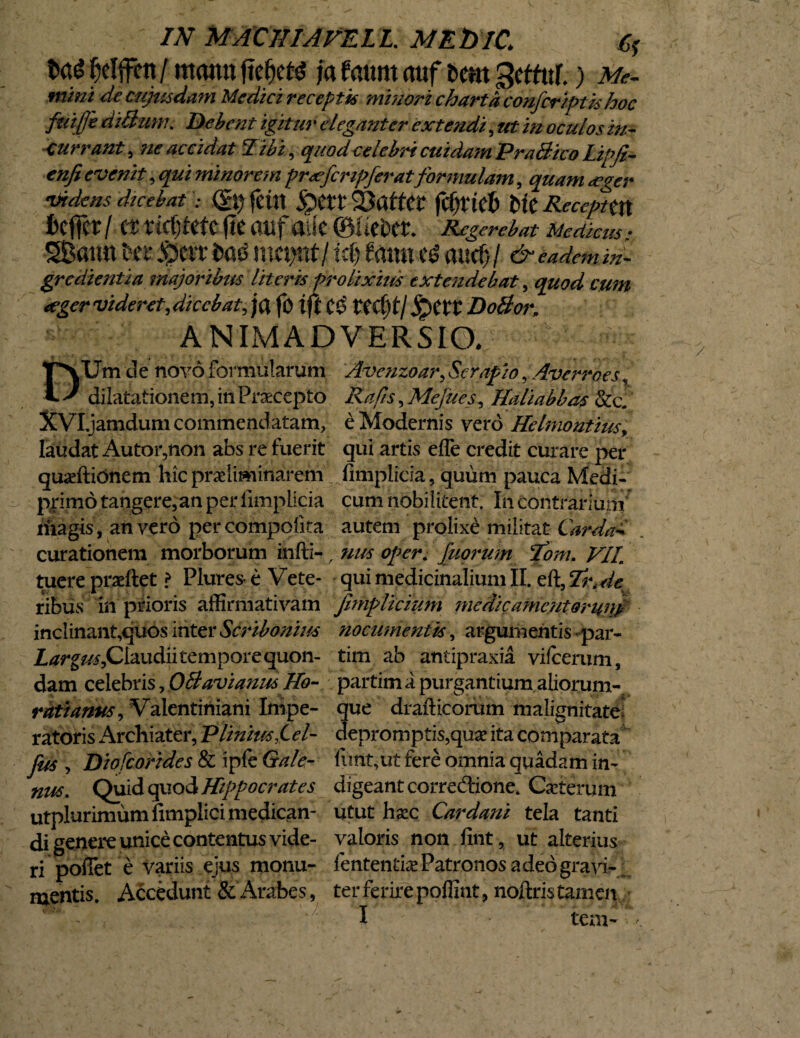 IN MACHIAVELL. MEDIC. 65
das helffen / mann siehets ja kaum auf dem Zettul. ) Me-
mini de cujusdam Medici receptis minori charta conscriptis hoc
fuisse dictum. Debent igitur eleganter extendi, ut in oculos in-
currant, ne accidat Tibi, quod celebri cuidam Practico Lipsi-
ensi evenit, qui minorem præscripserat formulam, quam æger
videns dicebat: Ey sein Herr Vatter schrieb die Recepten
besser / er richtete sie auf alle Glieder. Regerebat Medicus:
Wann der Herr das meynt / ich kann es auch / & eadem in-
gredientia majoribus literis prolixius extendebat, quod cum
æger videret, dicebat, ja so ist es recht / Herr Doctor.
ANIMADVERSIO.
DUm de novo formularum
dilatationem, in Præcepto
XVI. jamdum commendatam,
laudat Autor, non abs re fuerit
quæstionem hic præliminarem
primò tangere, an per simplicia
magis, an verò per composita
curationem morborum insti-
tuere præstet? Plures è Vete-
ribus in prioris affirmativam
inclinant, quos inter Scribonius
Largus, Claudii tempore quon-
dam celebris, Octavianus Ho-
ratianus, Valentiniani Impe-
ratoris Archiater, Plinius, Cel-
sus, Dioscorides & ipse Gale-
nus. Quid quod Hippocrates
utplurimum simplici medican-
di genere unicè contentus vide-
ri posset è variis ejus monu-
mentis. Accedunt & Arabes,
Avenzoar, Serapio, Averroes,
Rasis, Mesues, Haliabbas &c.
è Modernis verò Helmontius,
qui artis esse credit curare per
simplicia, quùm pauca Medi-
cum nobilitent. In contrarium
autem prolixè militat Carda-
nus oper. suorum Tom. VII.
qui medicinalium II. est, Tr. de
simplicium medicamentorum
nocumentis, argumentis par-
tim ab antipraxiâ viscerum,
partim à purgantium aliorum-
que drasticorum malignitate
depromptis, quæ ita comparata
sunt, ut ferè omnia quâdam in-
digeant correctione. Cæterum
utut hæc Cardani tela tanti
valoris non sint, ut alterius
sententiæ Patronos adeò gravi-
ter ferire possint, nostris tamen
I tem-